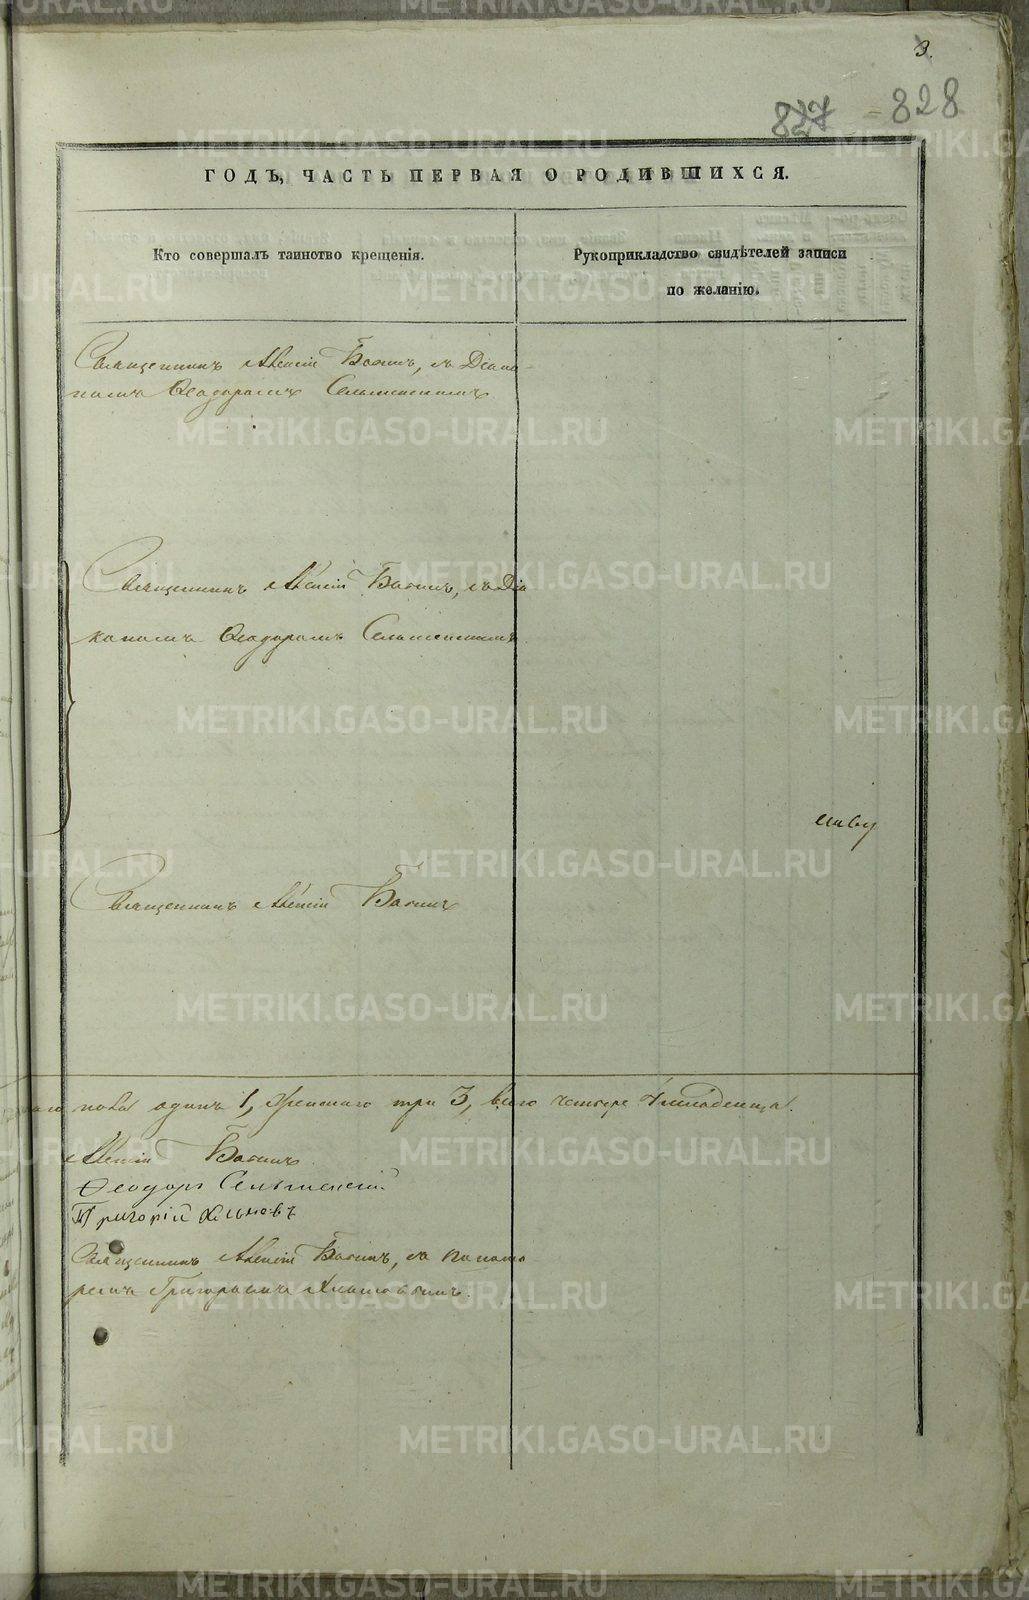 3.
827 828
ГОДЪ, ЧАСТЬ ПЕРВАЯ О РОДИВШИХСЯ.
Кто совершалъ таинство крещенія.
Рукоприкладство свидѣтелей записи
по желанію.
Священникъ Алексій Бабинъ, съ Діако-
номъ Ѳеодоромъ
Священникъ Алексій Бабинъ, съ Діа
кономъ Ѳеодоромъ
Священникъ Алексій Бабинъ
пола одинъ 1, женскаго три 3, всего четыре 4 младенца.
Алексій Бабинъ
Ѳеодоръ
Григорій
Священникъ Алексій Бабинъ, съ Понома
ремъ Григорьемъ
METRIKI.GASO-URAL.RU